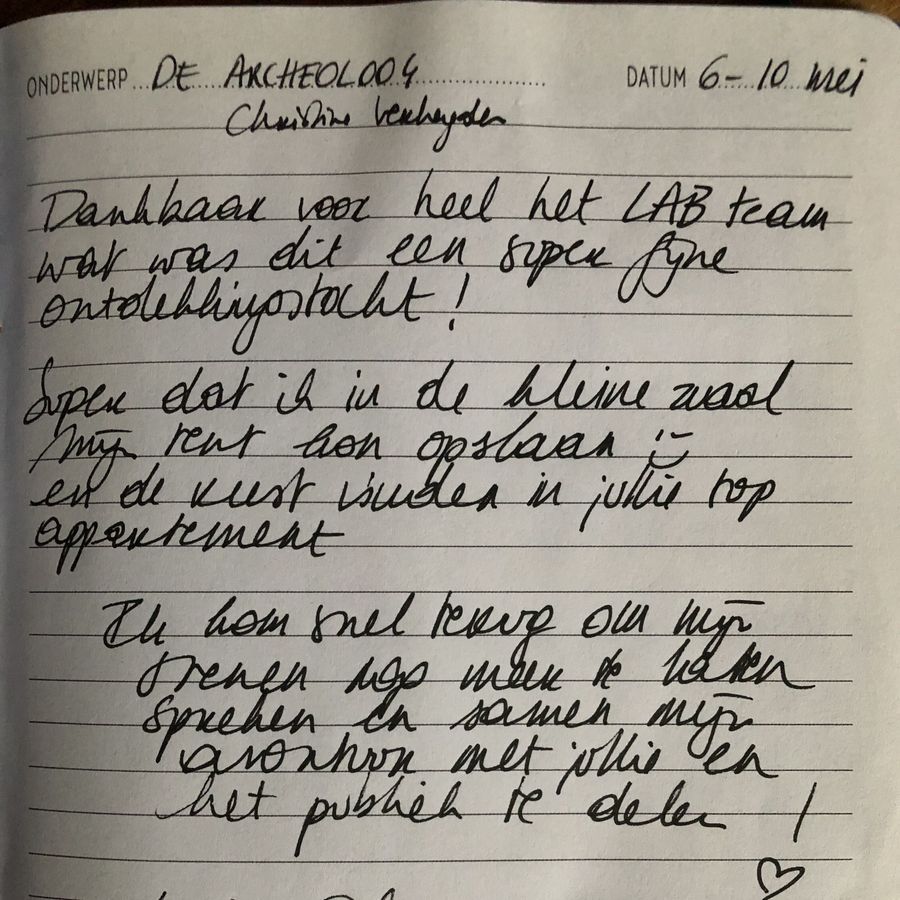 ONDERWERP DE ARCHEOLOOG DATUM 6-10 mei
Christine Verheyden
Dankbaar voor heel het LAB team
wat was dit een super fijne
ontdekkingstocht!
Super dat ik in de kleine zaal
mijn tent kon opslaan :-)
en de rust vinden in jullie top
appartement
Ik kom snel terug om mijn
stenen nog meer te laten
spreken en samen mijn
avontuur met jullie en
het publiek te delen !
♡